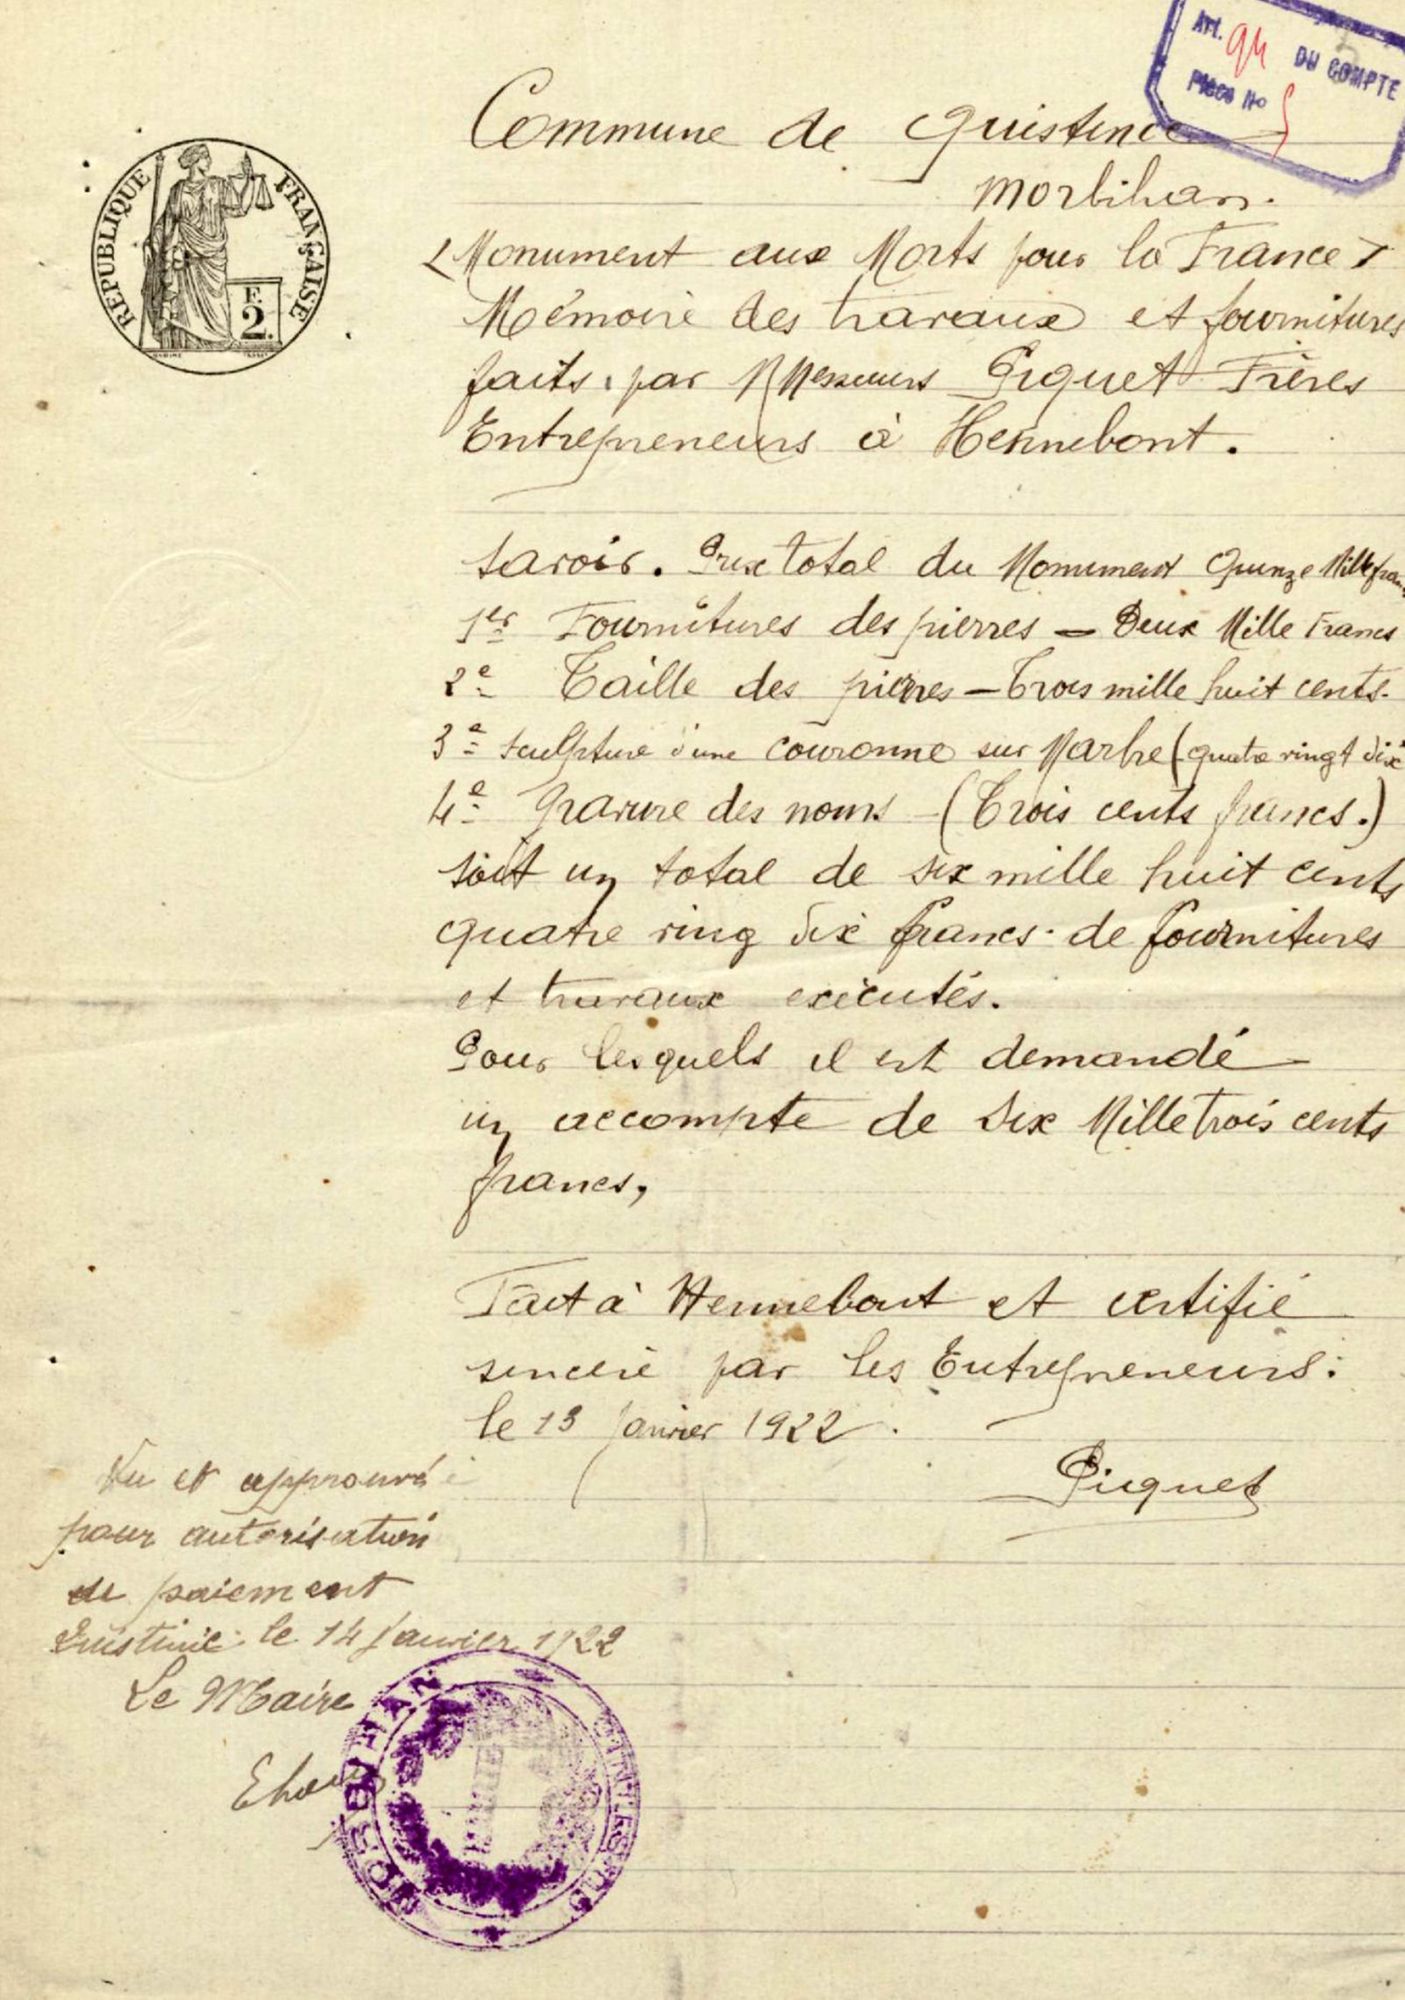 Art. 94 DU COMPTE
Pièce No 5
Commune de Guistinic
Morbihan.
REPUBLIQUE FRANÇAISE
F.
2.
<Monument aux Morts pour la France>
Mémoire des travaux et fournitures
faits, par Messieurs Piquet Frères
Entrepreneurs à Hennebont.
Savoir. Prix total du Monument Quinze Mille francs
1er Fournitures des pierres = Deux Mille Francs
2e Taille des pierres - Trois mille huit cents.
3e Sculpture d'une couronne sur Marbre (quatre vingt dix
4e Gravure des noms - (Trois cents francs.)
soit un total de six mille huit cents
quatre ving dix francs. de fournitures
et travaux exécutés.
Pour lesquels il est demandé
un accompte de Six Mille trois cents
francs,
Fait à Hennebont et certifié
sincère par les Entrepreneurs.
le 13 Janvier 1922.
Piquet
Vu et approuvé
pour autorisation
de paiement
Guistinic le 14 Janvier 1922
Le Maire
MORBIHAN
MAIRIE